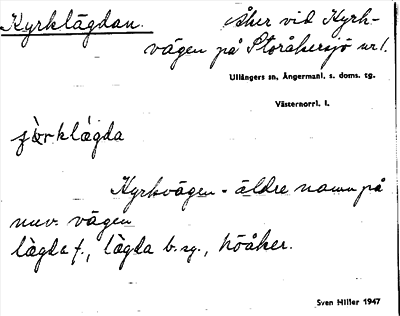 Kyrklägdan. Åker vid Kyrk-
vägen på Storåkersjö nr 1.
Ullångers sn, Ångermanl. s. doms. tg.
Västernorrl. l.
lägda
Kyrkvägen - äldre namn på
nuv. vägen
lägda f., lägda b. sg., höåker.
Sven Hiller 1947